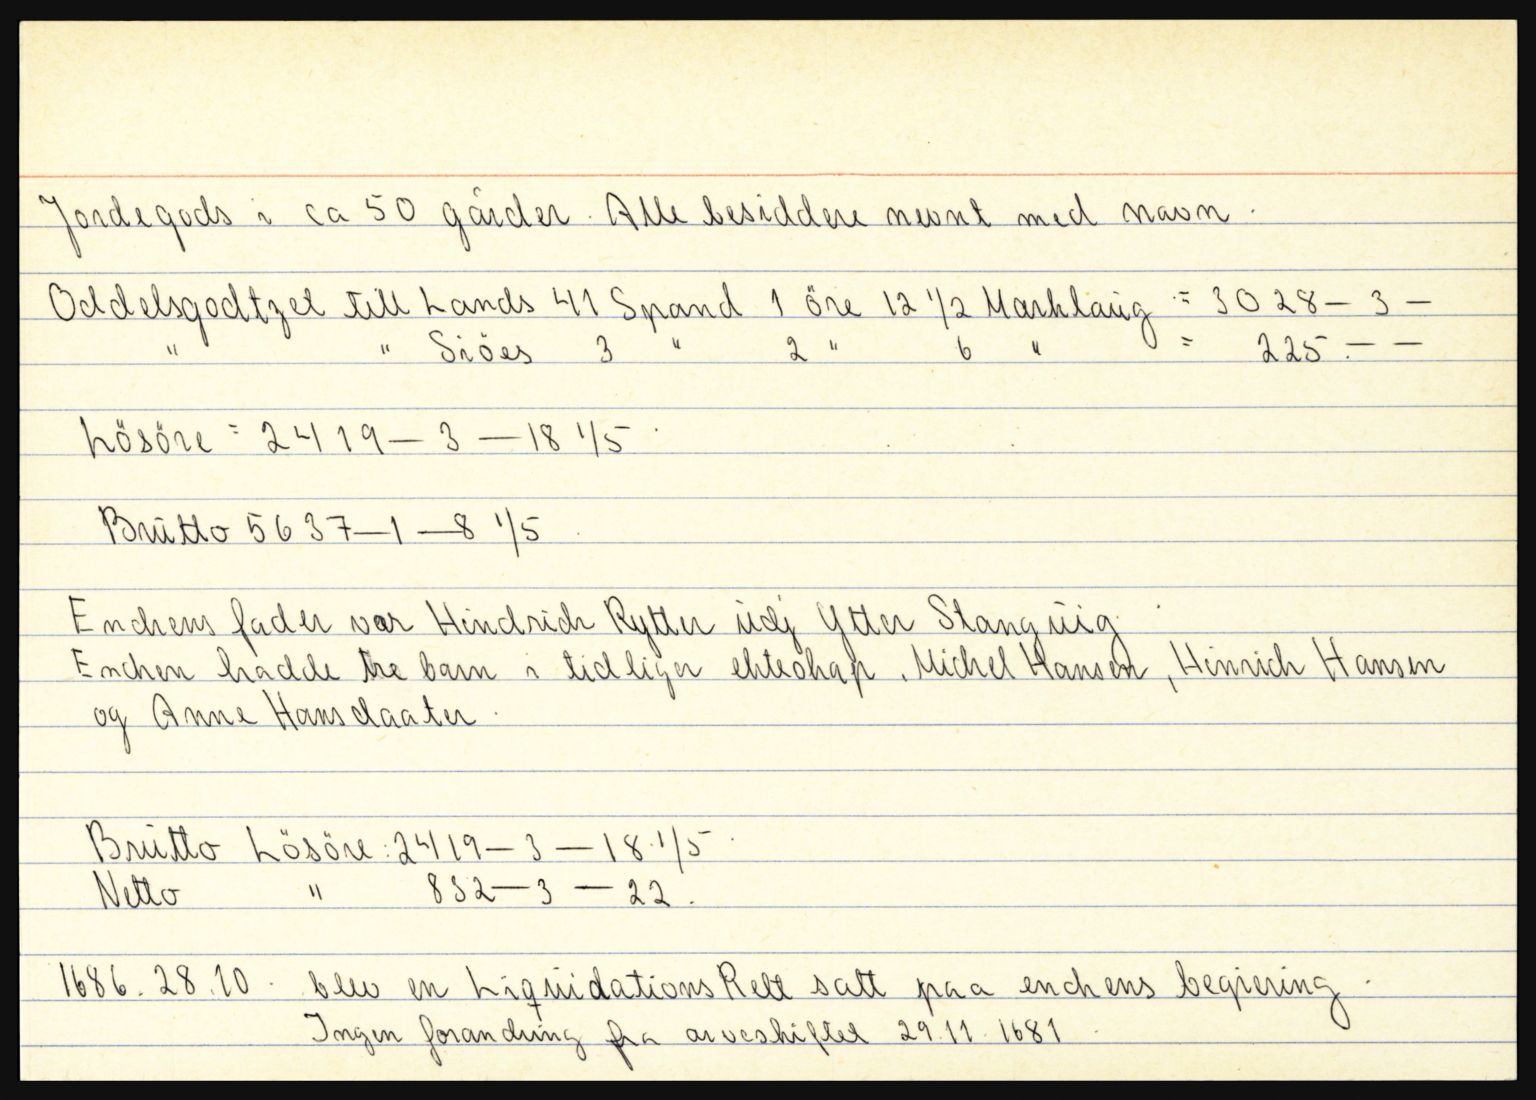 Jordegods i ca 50 gårder. Alle besiddere nevnt med navn.
Oddelsgodtzet till Lands 41 Spand 1 öre 12 1/2 Marklaüg = 3028 – 3 –
" " Siöes 3 " 2 " 6 " = 225. – –
Lösöre = 2419 – 3 – 18 1/5.
Brütto 5637 – 1 – 8 1/5.
Enchens fader var Hindrich Rytter üdj Ytter Stangüig.
Enchen hadde tre barn i tidliger ekteskap. Michel Hansen, Hinrich Hansen
og Anne Hansdaater.
Brütto Lösöre: 2419 – 3 – 18 1/5.
Netto " 832 – 3 – 22.
1686. 28.10. blev en Liqüidations Rett satt paa enchens begiering.
Ingen forandring fra arveskiftet 29.11.1681.